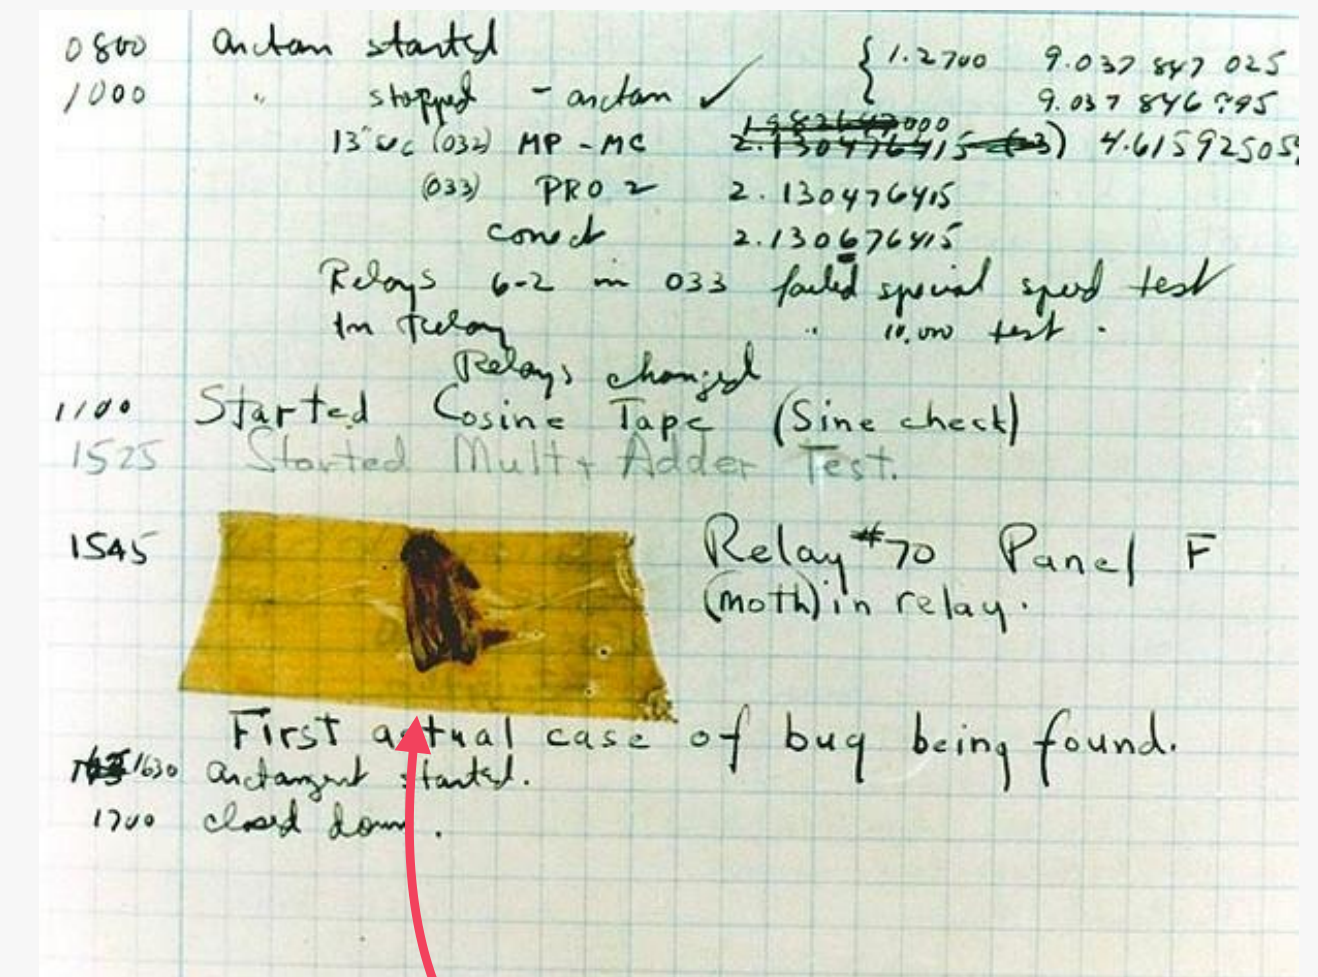 0800 arctan started { 1.2700 9.037 847 025
1000 " stopped - arctan ✓ 9.037 846 995
13" uc (032) MP - MC 2.130476415 (-3) 4.615925059
(033) PRO 2 2.130476415
conect 2.130676415
Relays 6-2 in 033 failed special speed test
In Relay " 10,000 test.
Relays changed
1100 Started Cosine Tape (Sine check)
1525 Started Mult + Adder Test.
1545 Relay #70 Panel F
(moth) in relay.
First actual case of bug being found.
1630 arctangent started.
1700 closed down.